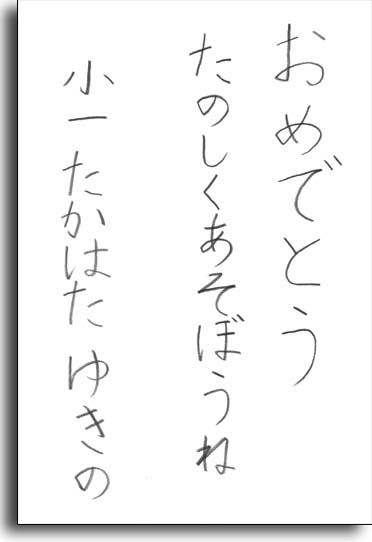 おめでとう
たのしくあそぼうね
小一 たかはた ゆきの